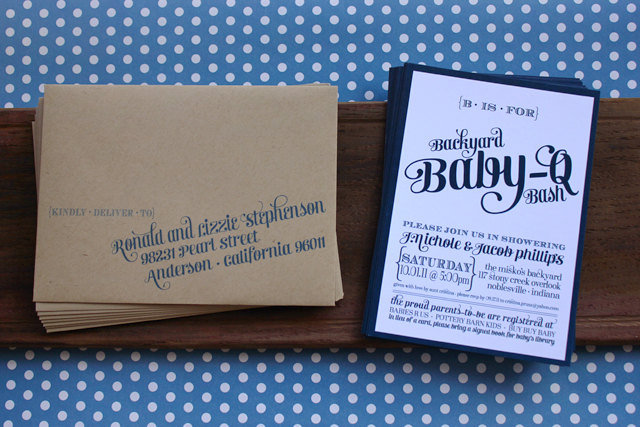 {KINDLY · DELIVER · TO}
Ronald and Lizzie Stephenson
98231 Pearl Street
Anderson · California 96011
{B · IS · FOR}
Backyard
Baby-Q
Bash
PLEASE JOIN US IN SHOWERING
J.Nichole & Jacob phillips
{SATURDAY
10.01.11 @ 5:00pm}
the misko's backyard
117 stony creek overlook
noblesville · indiana
given with love by aunt cristina · please rsvp by
the proud parents-to-be are registered at
BABIES R US · POTTERY BARN KIDS · BUY BUY BABY
in lieu of a card, please bring a signed book for baby's library